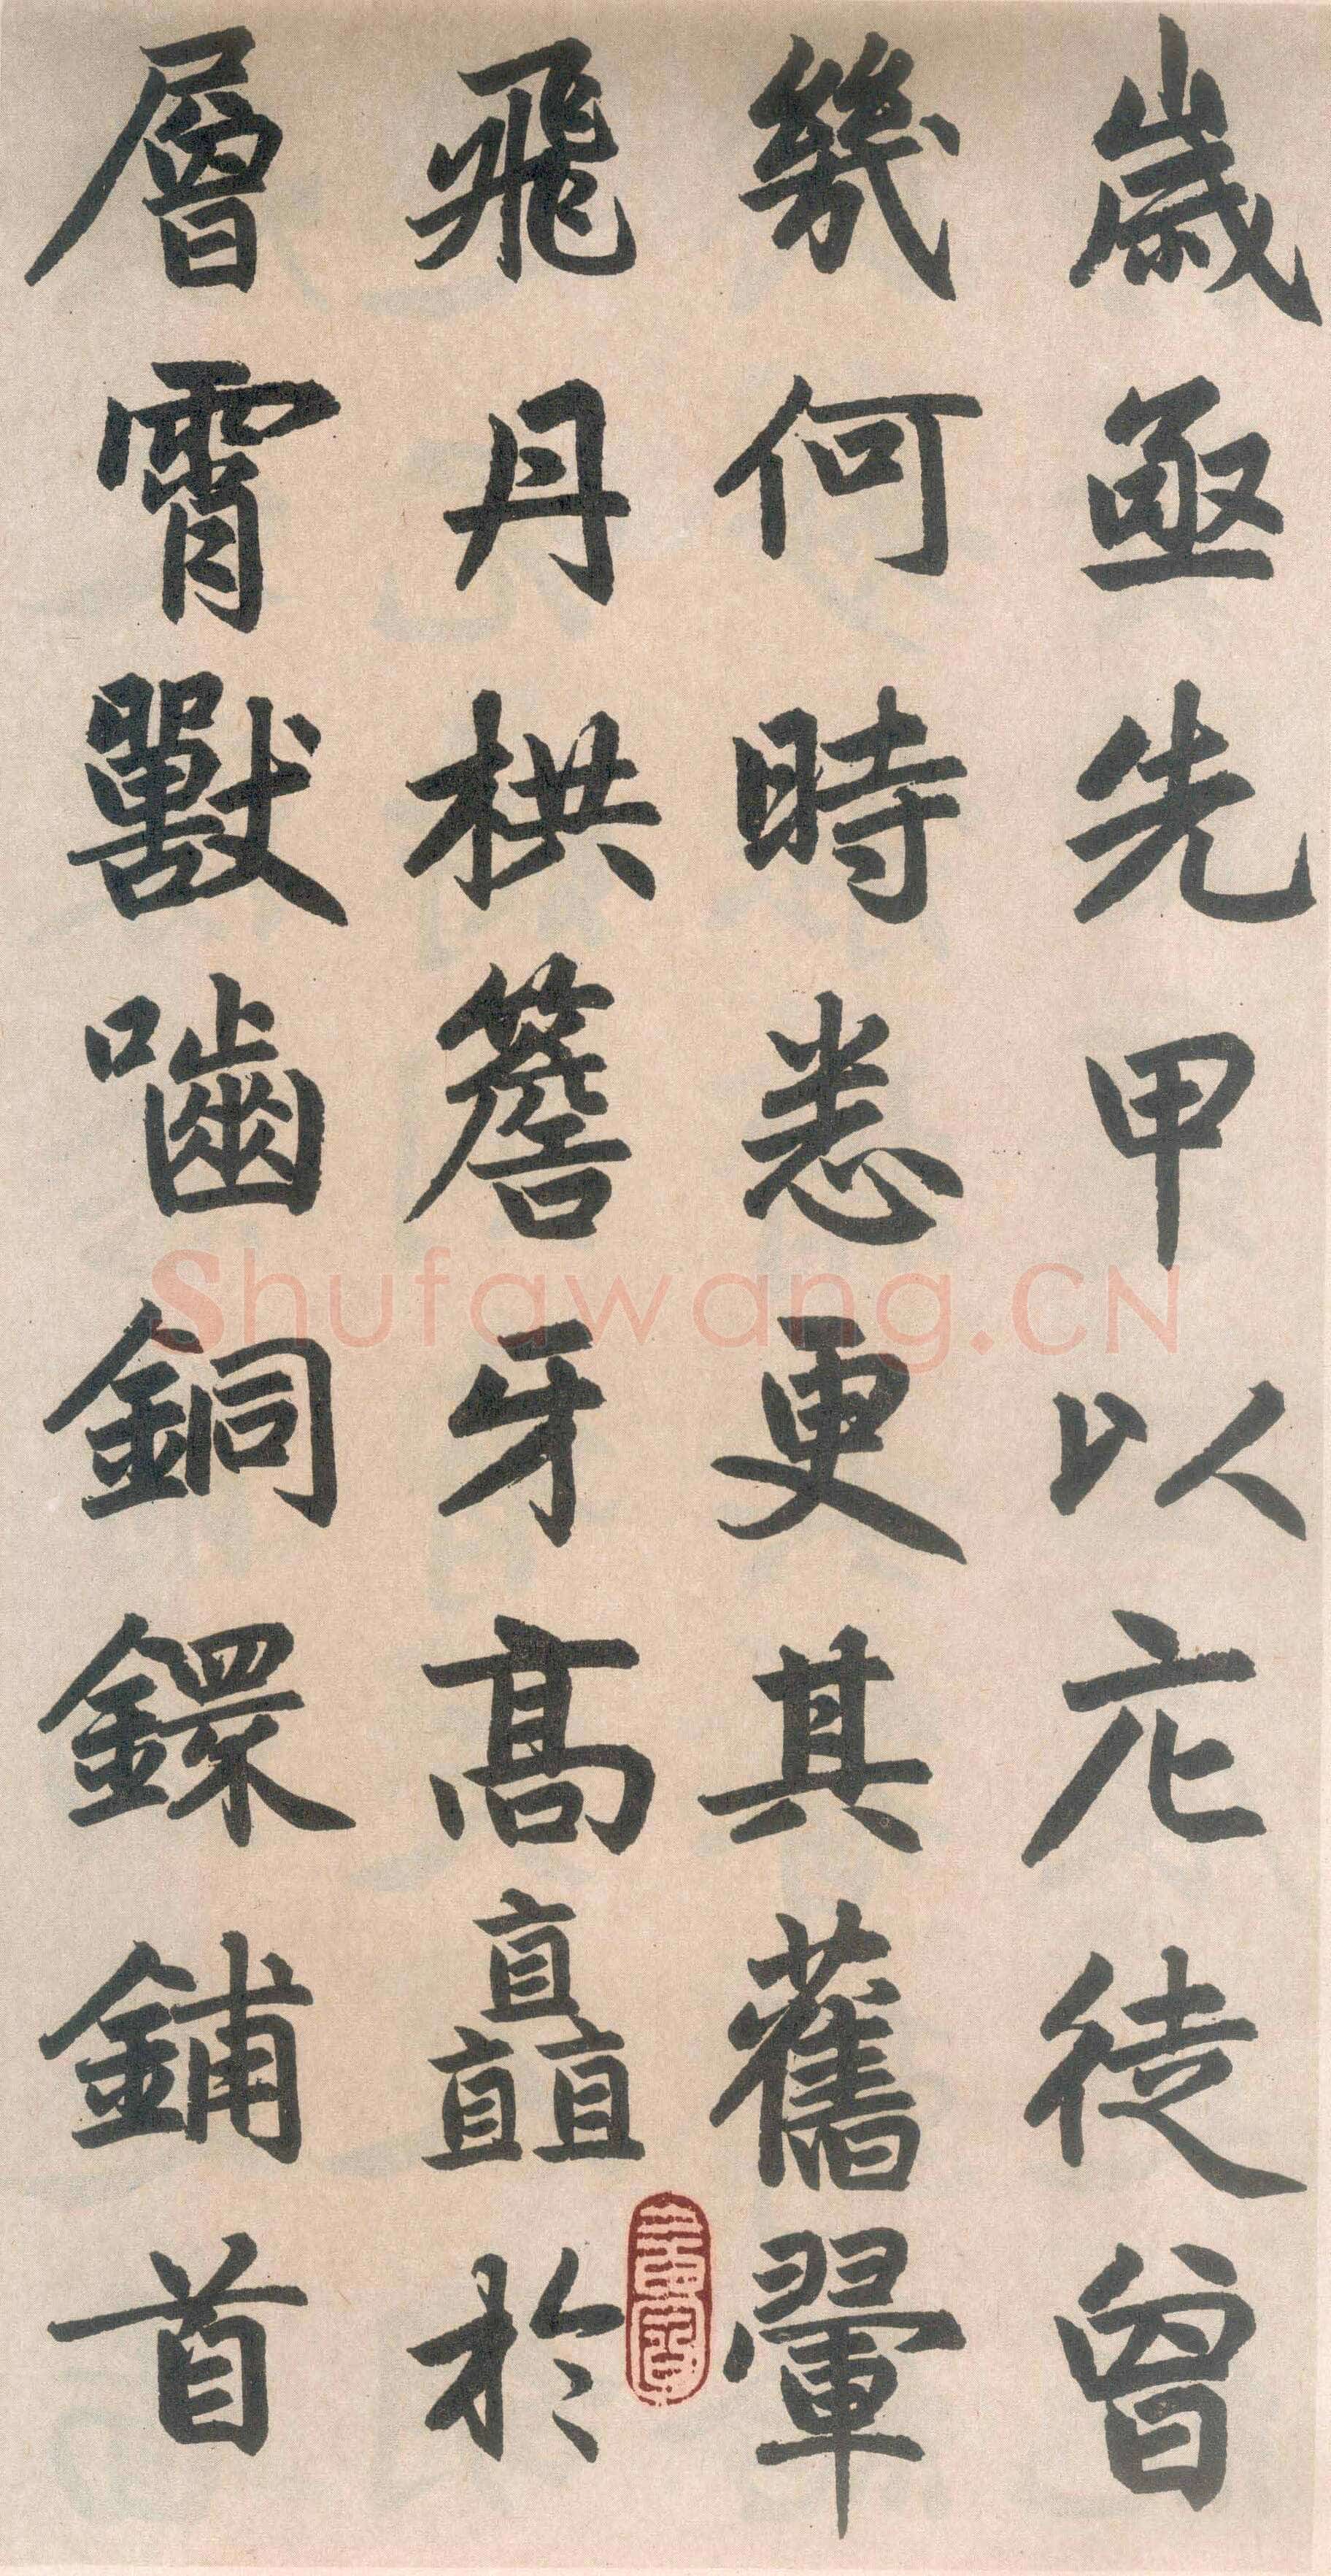 歲亟先甲以庀徒曾
幾何時悉更其舊翬
飛丹栱簷牙高矗於
層霄獸嚙銅鐶鋪首
Shufawang.CN